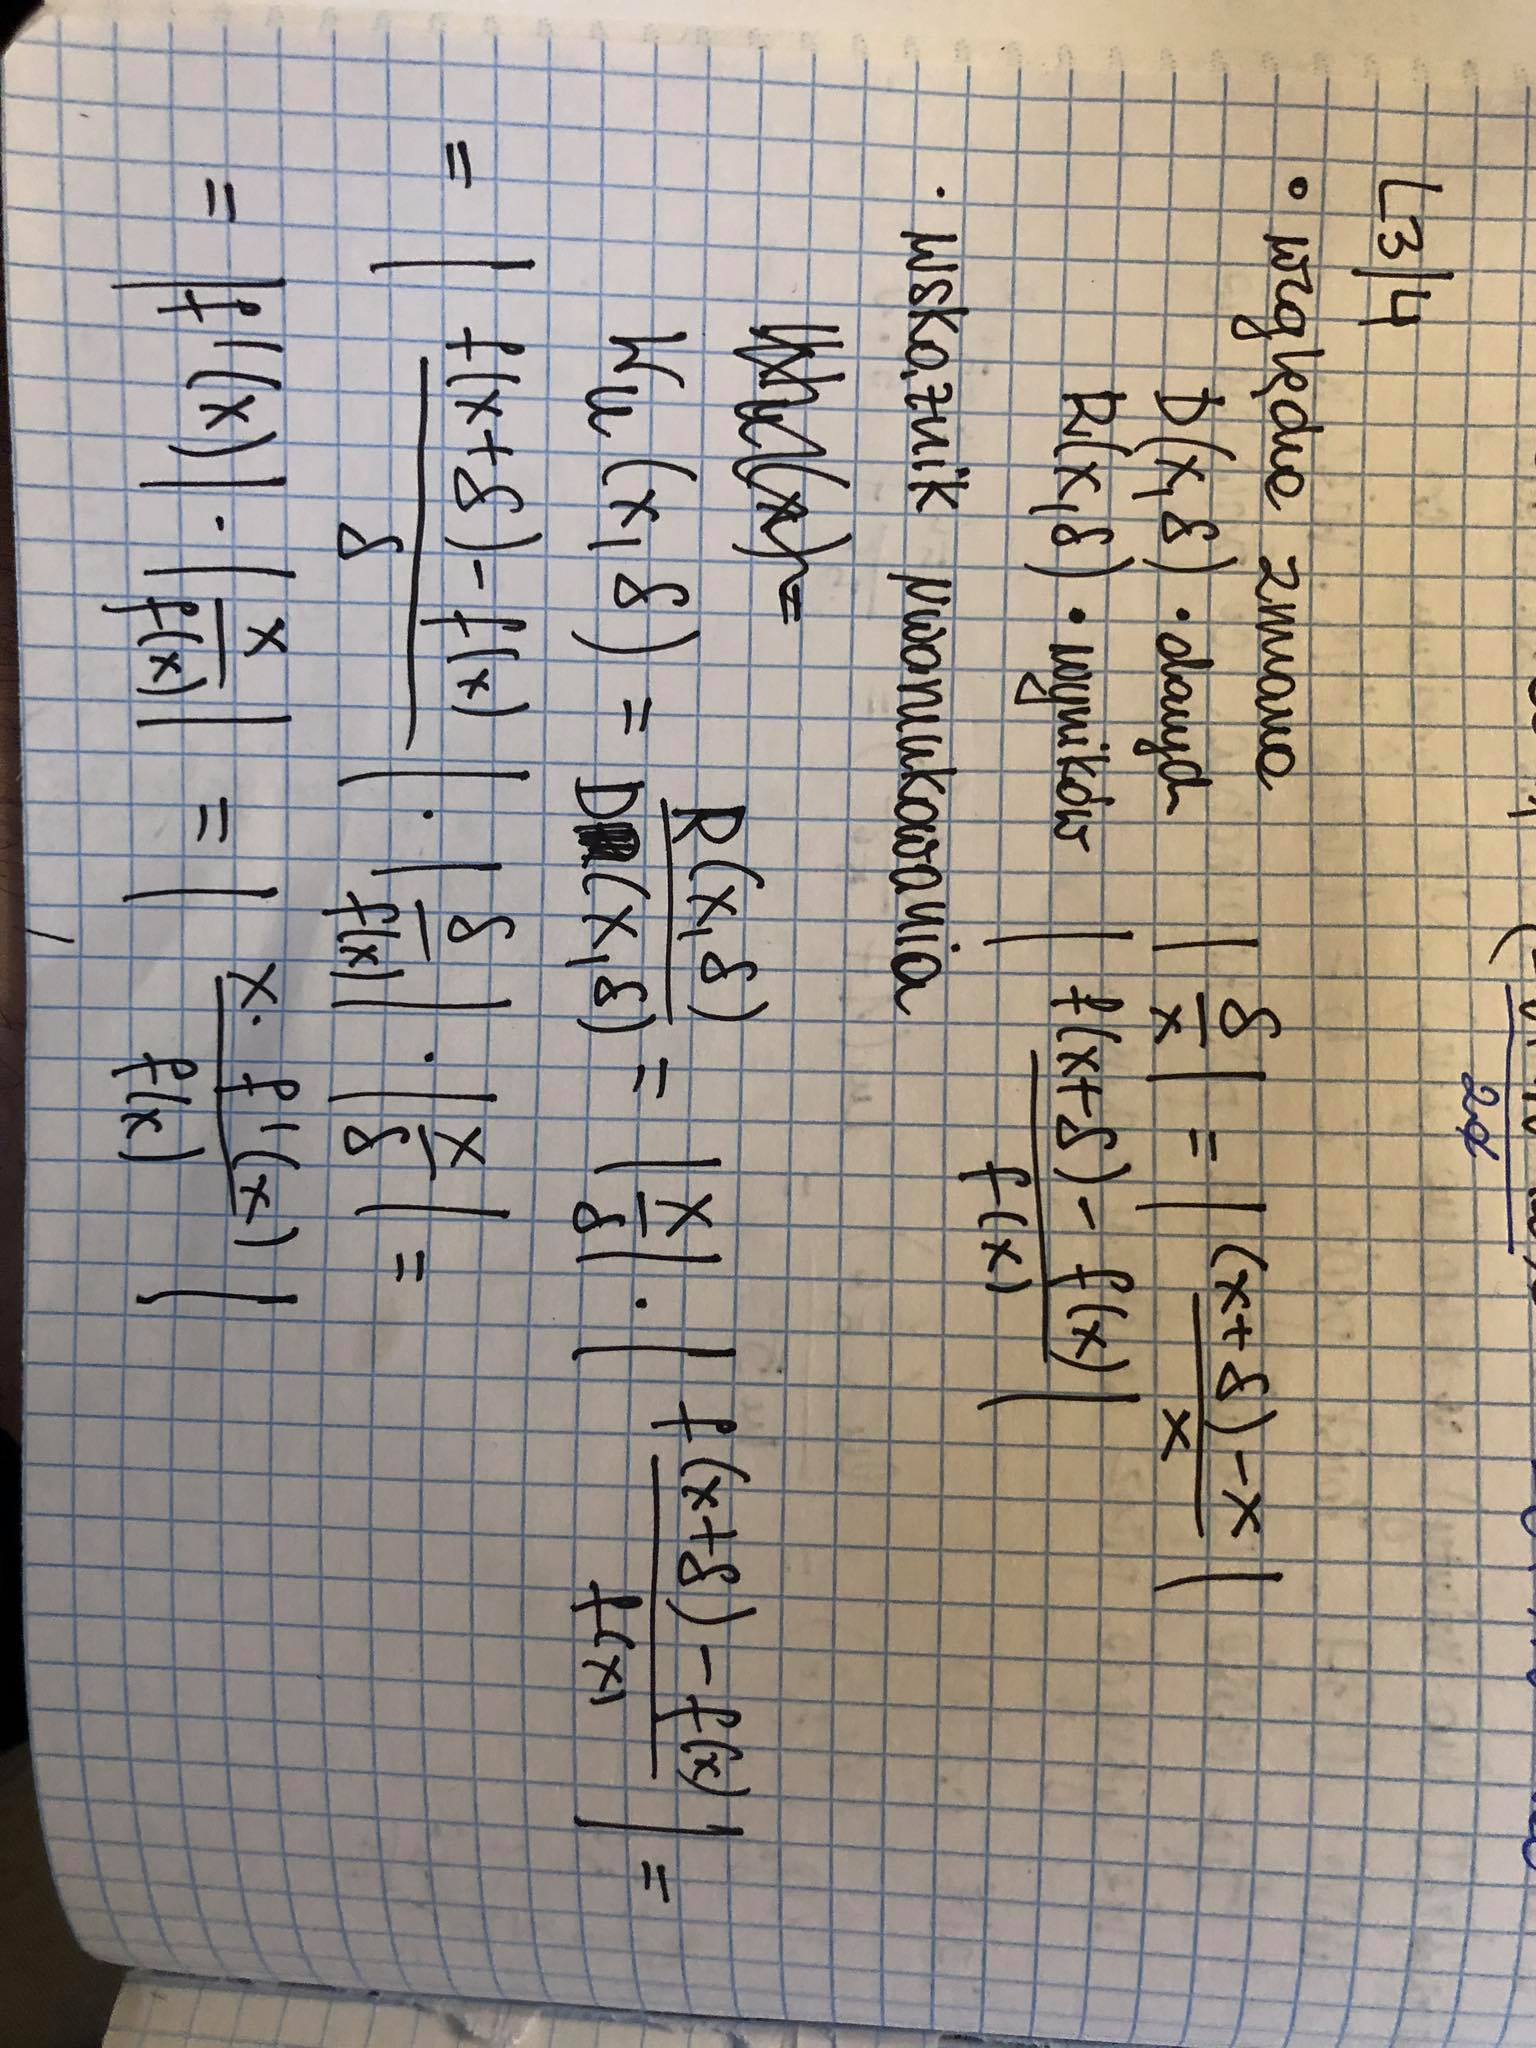 2a
L3|4
• względna zmiana
D(x,δ) • danych |δ/x| = |((x+δ)-x)/x|
R(x,δ) • wyników |(f(x+δ)-f(x))/f(x)|
· wskaźnik uwarunkowania
Wu(x,δ) = R(x,δ)/D(x,δ) = |x/δ| · |(f(x+δ)-f(x))/f(x)| =
= |(f(x+δ)-f(x))/δ| · |δ/f(x)| · |x/δ| =
= |f'(x)| · |x/f(x)| = |(x· f'(x))/f(x)|